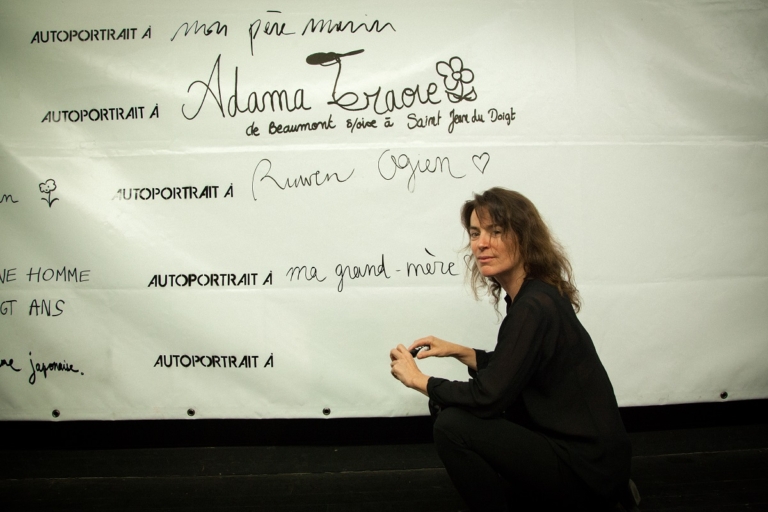 AUTOPORTRAIT À mon père marin
AUTOPORTRAIT À Adama Traore
de Beaumont s/oise à Saint Jean du Doigt
n AUTOPORTRAIT À Ruwen Ogien
NE HOMME AUTOPORTRAIT À ma grand-mère
GT ANS
japonaise. AUTOPORTRAIT À